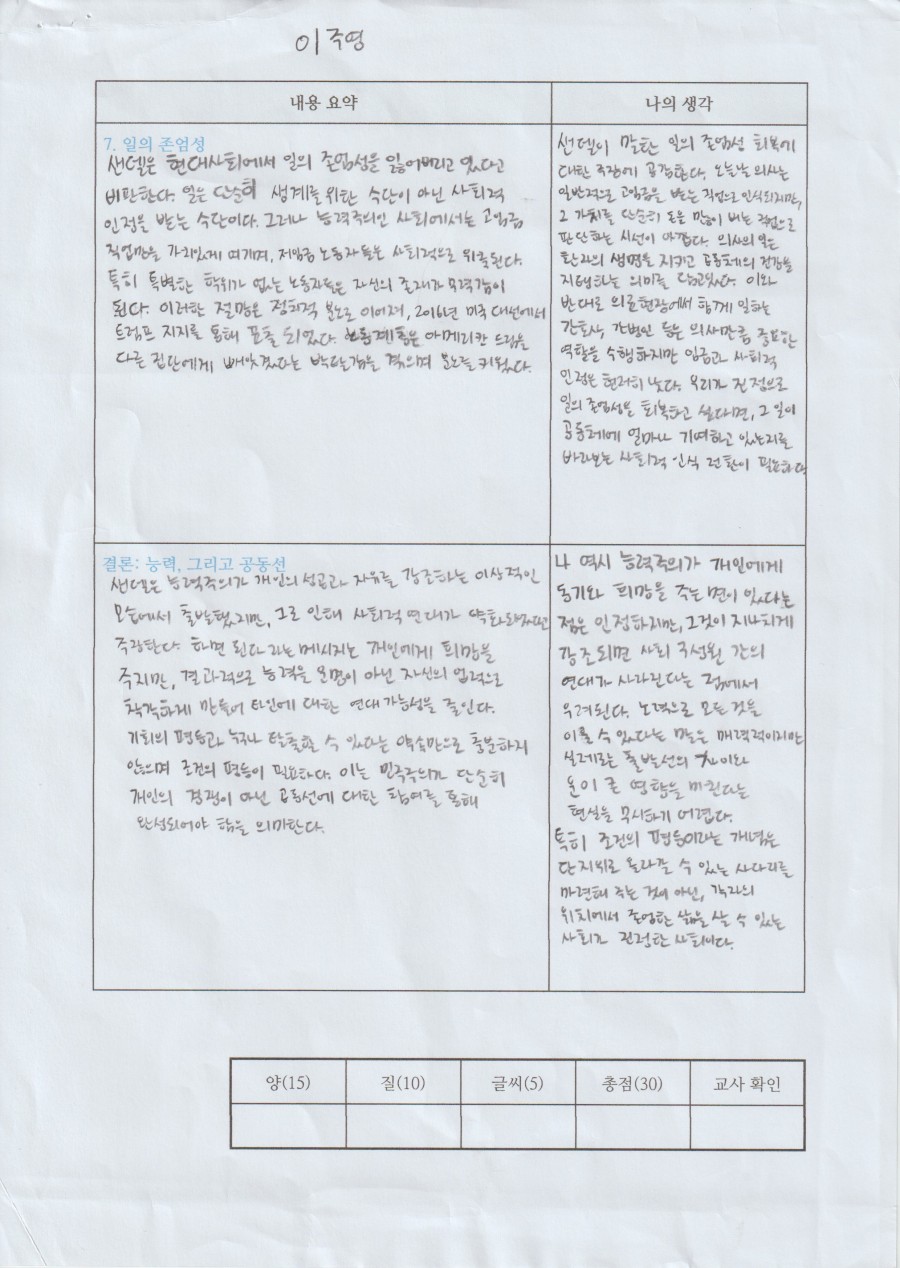 이주영
내용 요약
나의 생각
7. 일의 존엄성
샌델은 현대사회에서 일의 존엄성을 잃어버리고 있다고
비판한다. 일은 단순히 생계를 위한 수단이 아닌 사회적
인정을 받는 수단이다. 그러나 능력주의인 사회에서는 고임금
직업만을 가치있게 여기며, 저임금 노동자들은 사회적으로 위축된다.
특히 특별한 학위가 없는 노동자들은 자신의 존재가 무력감이
된다. 이러한 절망은 정치적 분노로 이어져, 2016년 미국 대선에서
트럼프 지지를 통해 표출 되었다. 노동계층은 아메리칸 드림을
다른 집단에게 빼앗겼다는 박탈감을 겪으며 분노를 키웠다.
샌델이 말한 일의 존엄성 회복에
대한 주장에 공감한다. 오늘날 의사는
일반적으로 고임금을 받는 직업으로 인식되지만,
그 가치를 단순히 돈을 많이 버는 직업으로
판단하는 시선이 아깝다. 의사의 일은
환자의 생명을 지키고 공동체의 건강을
지탱하는 의미를 담고있다. 이와
반대로 의료현장에서 함께 일하는
간호사, 간병인 등은 의사만큼 중요한
역할을 수행하지만 임금과 사회적
인정은 현저히 낮다. 우리가 진정으로
일의 존엄성을 회복하고 싶다면, 그 일이
공동체에 얼마나 기여하고 있는지를
바라보는 사회적 인식 전환이 필요하다
결론: 능력, 그리고 공동선
샌델은 능력주의가 개인의 성공과 자유를 강조하는 이상적인
모습에서 출발했지만, 그로 인해 사회적 연대가 약화되었다고
주장한다. 하면 된다 라는 메시지는 개인에게 희망을
주지만, 결과적으로 능력을 운명이 아닌 자신의 업적으로
착각하게 만들어 타인에 대한 연대 가능성을 줄인다.
기회의 평등과 누구나 탈출할 수 있다는 약속만으로 충분하지
않으며 조건의 평등이 필요하다. 이는 민주주의가 단순히
개인의 경쟁이 아닌 공동선에 대한 참여를 통해
완성되어야 함을 의미한다.
나 역시 능력주의가 개인에게
동기와 희망을 주는 면이 있다는
점은 인정하지만, 그것이 지나치게
강조되면 사회 구성원 간의
연대가 사라진다는 점에서
우려된다. 노력으로 모든 것을
이룰 수 있다는 말은 매력적이지만
실제로는 출발선의 차이와
운이 큰 영향을 미친다는
현실을 무시하기 어렵다.
특히 조건의 평등이라는 개념은
단지 위로 올라갈 수 있는 사다리를
마련해 주는 것이 아닌, 각자의
위치에서 존엄한 삶을 살 수 있는
사회가 진정한 사회이다.
양(15)
질(10)
글씨(5)
총점(30)
교사 확인